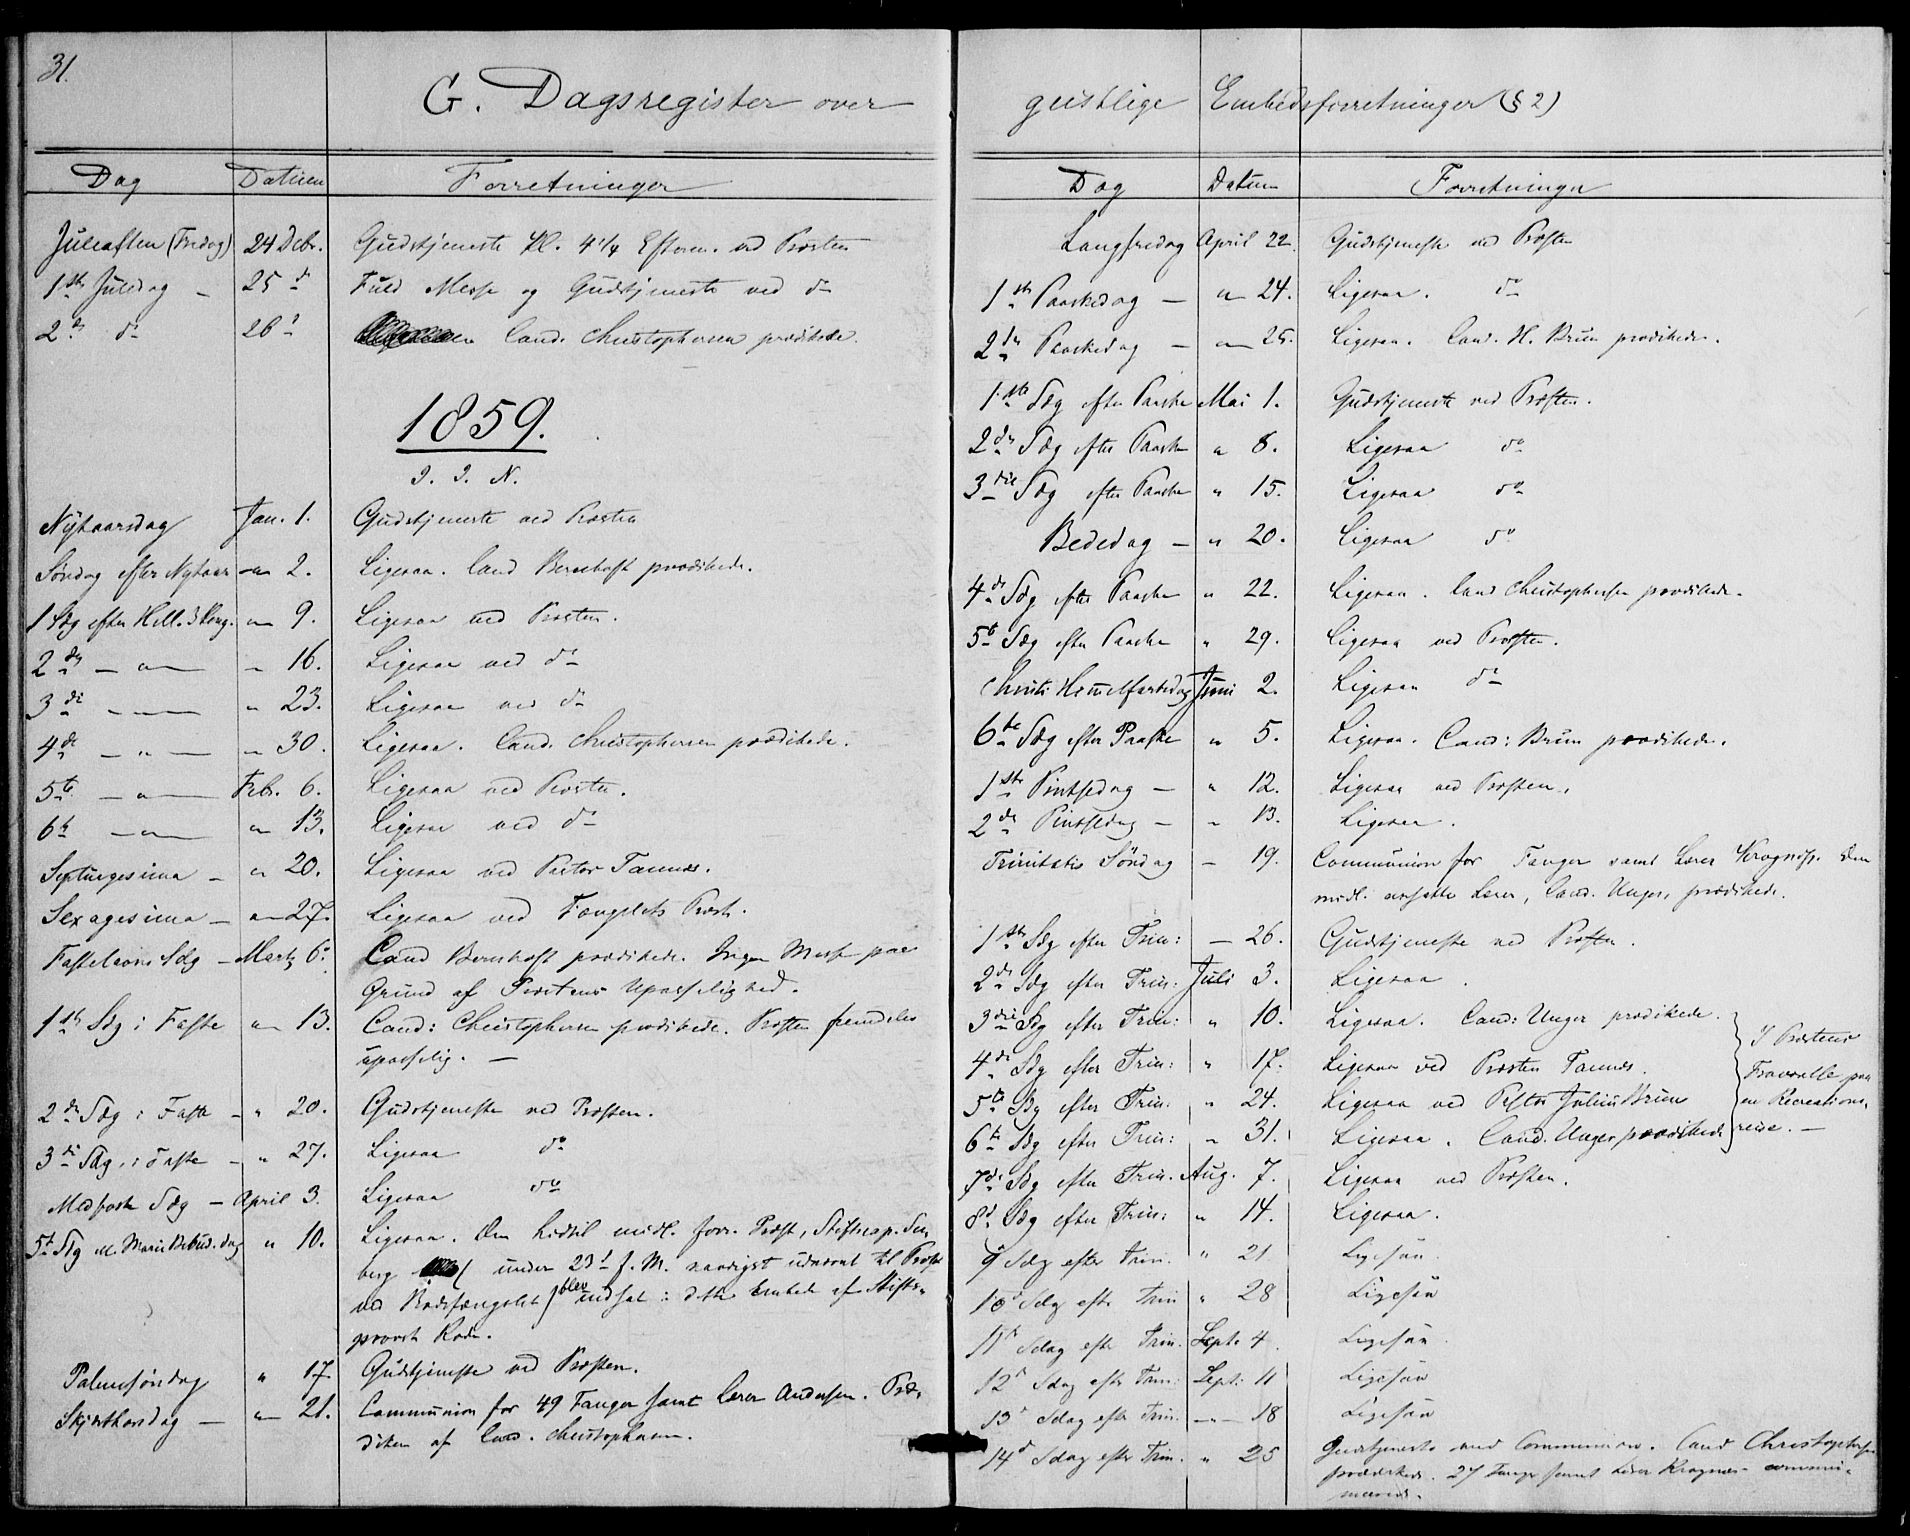 31.
G. Dagsregister over
Dag Datum Forretninger
Juleaften (Fredag) 24 Decbr. Gudstjeneste Kl. 4 1/4 Efterm. ved Præsten
1ste Juledag – 25 do Fuld Messe og Gudstjeneste ved do
2den do 26 do Cand. Christophersen prædikede.
1859.
I. I. N.
Nytaarsdag Jan. 1. Gudstjeneste ved Præsten
Søndag efter Nytaar – " 2. Ligesaa. Cand Bernhoft prædikede.
1 Sdg efter Hell. 3 Kong. – " 9. Ligesaa ved Præsten.
2den – " – " 16. Ligesaa ved do
3die – " – " 23. Ligesaa ved do
4de – " – " 30. Ligesaa. Cand. Christophersen prædikede.
5te – " – Febr. 6. Ligesaa ved Præsten.
6te – " – " 13. Ligesaa ved do
Septuagesima – " 20. Ligesaa ved Pastor Tannæs.
Sexagesima – " 27. Ligesaa ved Fængslets Præst.
Fastelavns Sdg – Marts 6. Cand Bernhoft prædikede. Ingen Messe paa
Grund af Præstens Upasselighed.
1ste Sdg i Faste " 13. Cand: Christophersen prædikede. Præsten fremdeles
upasselig. –
2den Sdg i Faste – " 20. Gudstjeneste ved Præsten.
3die Sdg i Faste – " 27. Ligesaa do
Midfaste Sdg – April 3. Ligesaa do
5te Sdg el. Mariæ Bebud. dag " 10. Ligesaa. Den hidtil midl. forr. Præst, Stiftscap.
berg under 23de f. M. naadigst udnævnt til Præst
ved Bodsfængslet blev indsat i dette Embede af Stifts-
provst Rode.
Palmesøndag " 17. Gudstjeneste ved Præsten.
Skjærthorsdag – " 21. Communion for 49 Fanger samt Lærer Andersen. Præ-
diken af Cand. Christophersen.
geistlige Embedsforretninger (§ 2)
Dag Datum Forretninger
Langfredag April 22 Gudstjeneste ved Præsten
1ste Paaskedag – " 24. Ligesaa. do
2den Paaskedag – " 25. Ligesaa. Cand. H. Bruun prædikede.
1ste Sdg efter Paaske Mai 1. Gudstjeneste ved Præsten.
2den Sdg efter Paaske " 8. Ligesaa do
3die Sdg efter Paaske " 15. Ligesaa do
Bededag – " 20. Ligesaa do
4de Sdg efter Paaske " 22. Ligesaa. Cand Christophersen prædikede.
5te Sdg efter Paaske " 29. Ligesaa ved Præsten.
Christi Himmelfartsdag Juni 2. Ligesaa do
6te Sdg efter Paaske " 5. Ligesaa. Cand: Bruun prædikede.
1ste Pintsedag – " 12. Ligesaa ved Præsten.
2den Pintsedag – " 13. Ligesaa.
Trinitatis Søndag – 19. Communion for Fanger samt Lærer Kragnæss. Den
midl. ansatte Lærer, Cand. Unger, prædikede.
1ste Sdg efter Trin: – 26. Gudstjeneste ved Præsten.
2den Sdg efter Trin: Juli 3. Ligesaa.
3die Sdg efter Trin: " 10. Ligesaa. Cand: Unger prædikede.
4de Sdg efter Trin: " 17. Ligesaa ved Præsten Tannæs.
5te Sdg efter Trin. " 24. Ligesaa ved Pastor Julius Bruun
6te Sdg efter Trin: " 31. Ligesaa. Cand. Unger prædikede
I Præstens
Fraværelse paa
en Recreations-
reise. –
7de Sdg efter Trin. Aug. 7. Ligesaa ved Præsten.
8de Sdg efter Trin: " 14. Ligesaa.
9 Sdg efter Trin. " 21 Ligesaa
10d Sdg efter Trin " 28 Ligesaa
11te Sdag efter Trin. Septr. 4. Ligesaa.
12d Sdag efter Trin: Sept: 11 Ligesaa
13d Sdag efter Trin. – " – 18 Ligesaa
14d Sdag efter Trin. " 25 Gudstjeneste med Communion. Cand Christophersen
prædikede. 27 Fanger samt Lærer Kragnæs communi-